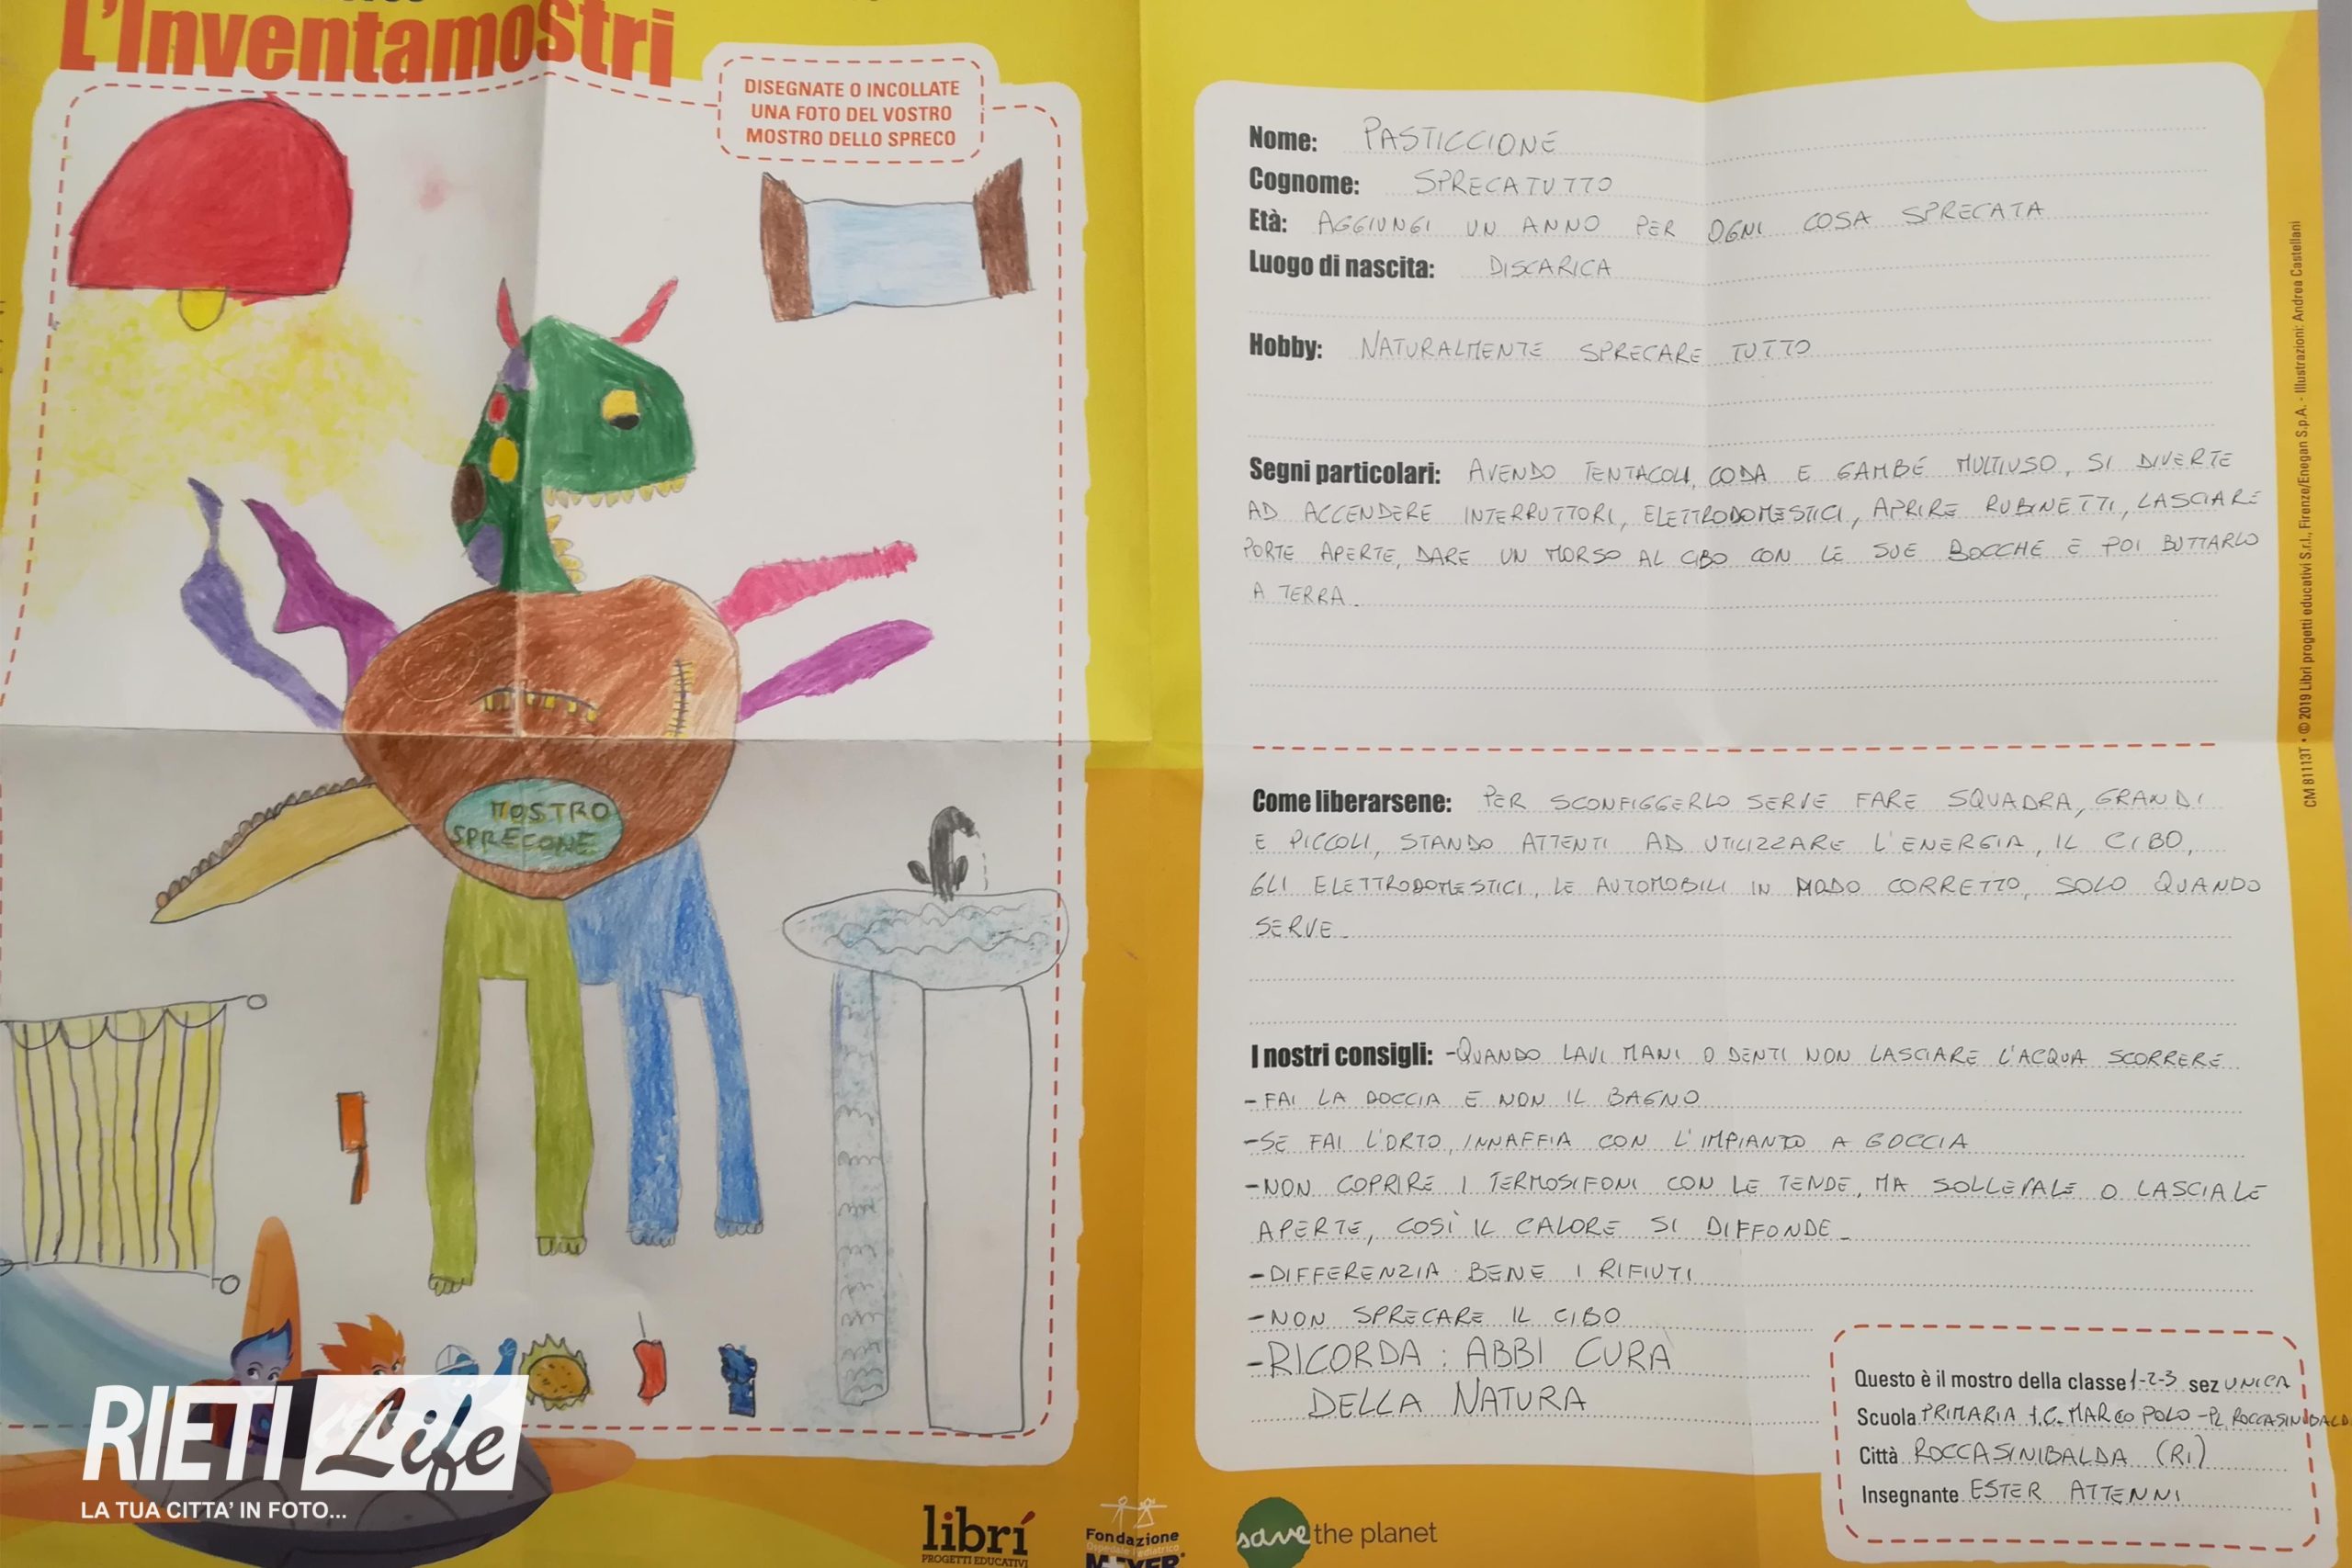 L'Inventamostri
DISEGNATE O INCOLLATE
UNA FOTO DEL VOSTRO
MOSTRO DELLO SPRECO
MOSTRO
SPRECONE
Nome: PASTICCIONE
Cognome: SPRECATUTTO
Età: AGGIUNGI UN ANNO PER OGNI COSA SPRECATA
Luogo di nascita: DISCARICA
Hobby: NATURALMENTE SPRECARE TUTTO
Segni particolari: AVENDO TENTACOLI, CODA E GAMBE MULTIUSO, SI DIVERTE
AD ACCENDERE INTERRUTTORI, ELETTRODOMESTICI, APRIRE RUBINETTI, LASCIARE
PORTE APERTE, DARE UN MORSO AL CIBO CON LE SUE BOCCHE E POI BUTTARLO
A TERRA.
Come liberarsene: PER SCONFIGGERLO SERVE FARE SQUADRA, GRANDI
E PICCOLI, STANDO ATTENTI AD UTILIZZARE L'ENERGIA, IL CIBO,
GLI ELETTRODOMESTICI, LE AUTOMOBILI IN MODO CORRETTO, SOLO QUANDO
SERVE.
I nostri consigli: -QUANDO LAVI MANI O DENTI NON LASCIARE L'ACQUA SCORRERE
-FAI LA DOCCIA E NON IL BAGNO
-SE FAI L'ORTO, INNAFFIA CON L'IMPIANTO A GOCCIA
-NON COPRIRE I TERMOSIFONI CON LE TENDE, MA SOLLEVALE O LASCIALE
APERTE, COSÌ IL CALORE SI DIFFONDE.
-DIFFERENZIA BENE I RIFIUTI
-NON SPRECARE IL CIBO
-RICORDA: ABBI CURA
DELLA NATURA
Questo è il mostro della classe 1-2-3 sez UNICA
Scuola PRIMARIA I.C. MARCO POLO - PL. ROCCASINIBALD
Città ROCCASINIBALDA (RI)
Insegnante ESTER ATTENNI
CM 81113T • © 2019 Librì progetti educativi S.r.l., Firenze/Enegan S.p.A. - Illustrazioni: Andrea Castellani
RIETI Life
LA TUA CITTA' IN FOTO...
librí
PROGETTI EDUCATIVI
Fondazione
Ospedale Pediatrico
MEYER
save the planet